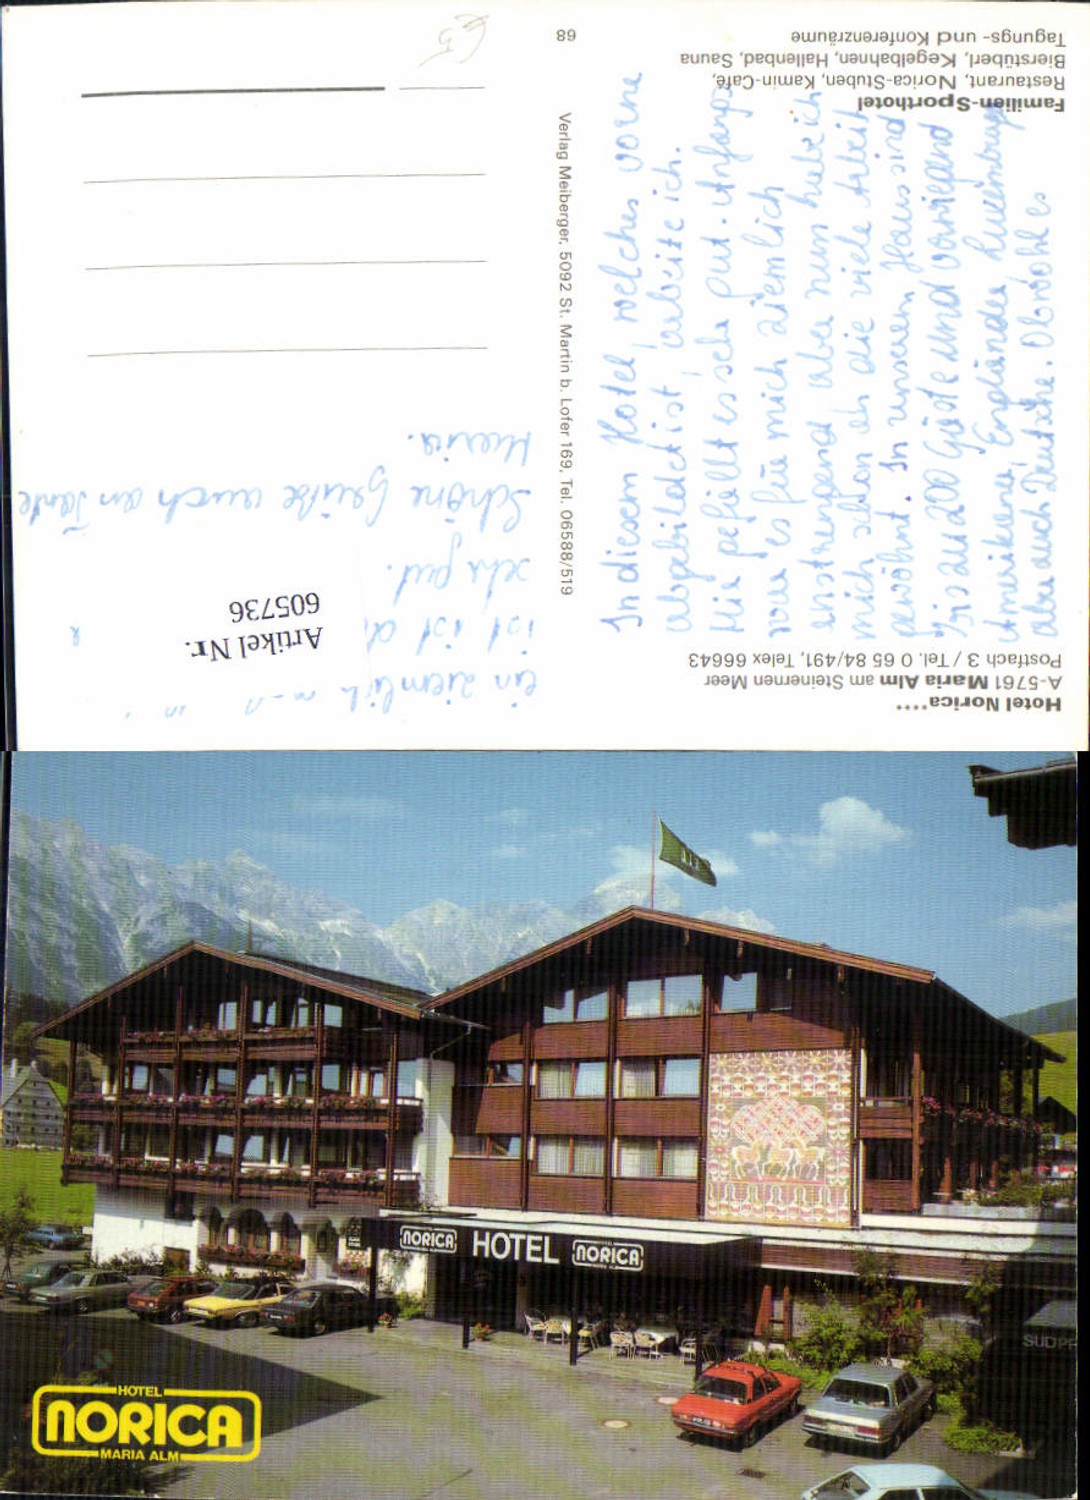 Hotel Norica****
A-5761 Maria Alm am Steinernen Meer
Postfach 3 / Tel. 0 65 84/491, Telex 66643
Familien-Sporthotel
Restaurant, Norica-Stuben, Kamin-Café,
Bierstüberl, Kegelbahnen, Hallenbad, Sauna
Tagungs- und Konferenzräume
68
€5
Verlag Meiberger, 5092 St. Martin b. Lofer 169, Tel. 06588/519
In diesem Hotel, welches vorne
abgebildet ist, arbeite ich.
Mir gefällt es sehr gut. Anfangs
war es für mich ziemlich
anstrengend aber nun habe ich
mich schon an die viele Arbeit
gewöhnt. In unserem Haus sind
bis zu 200 Gäste und vorwiegend
Amerikaner, Engländer
aber auch Deutsche. Obwohl es
ein ziemlich
ist, ist
sehr gut.
Schöne Grüße auch an Tante
Maria.
Artikel Nr.
605736
NORICA HOTEL NORICA
SÜDP
HOTEL
NORICA
MARIA ALM